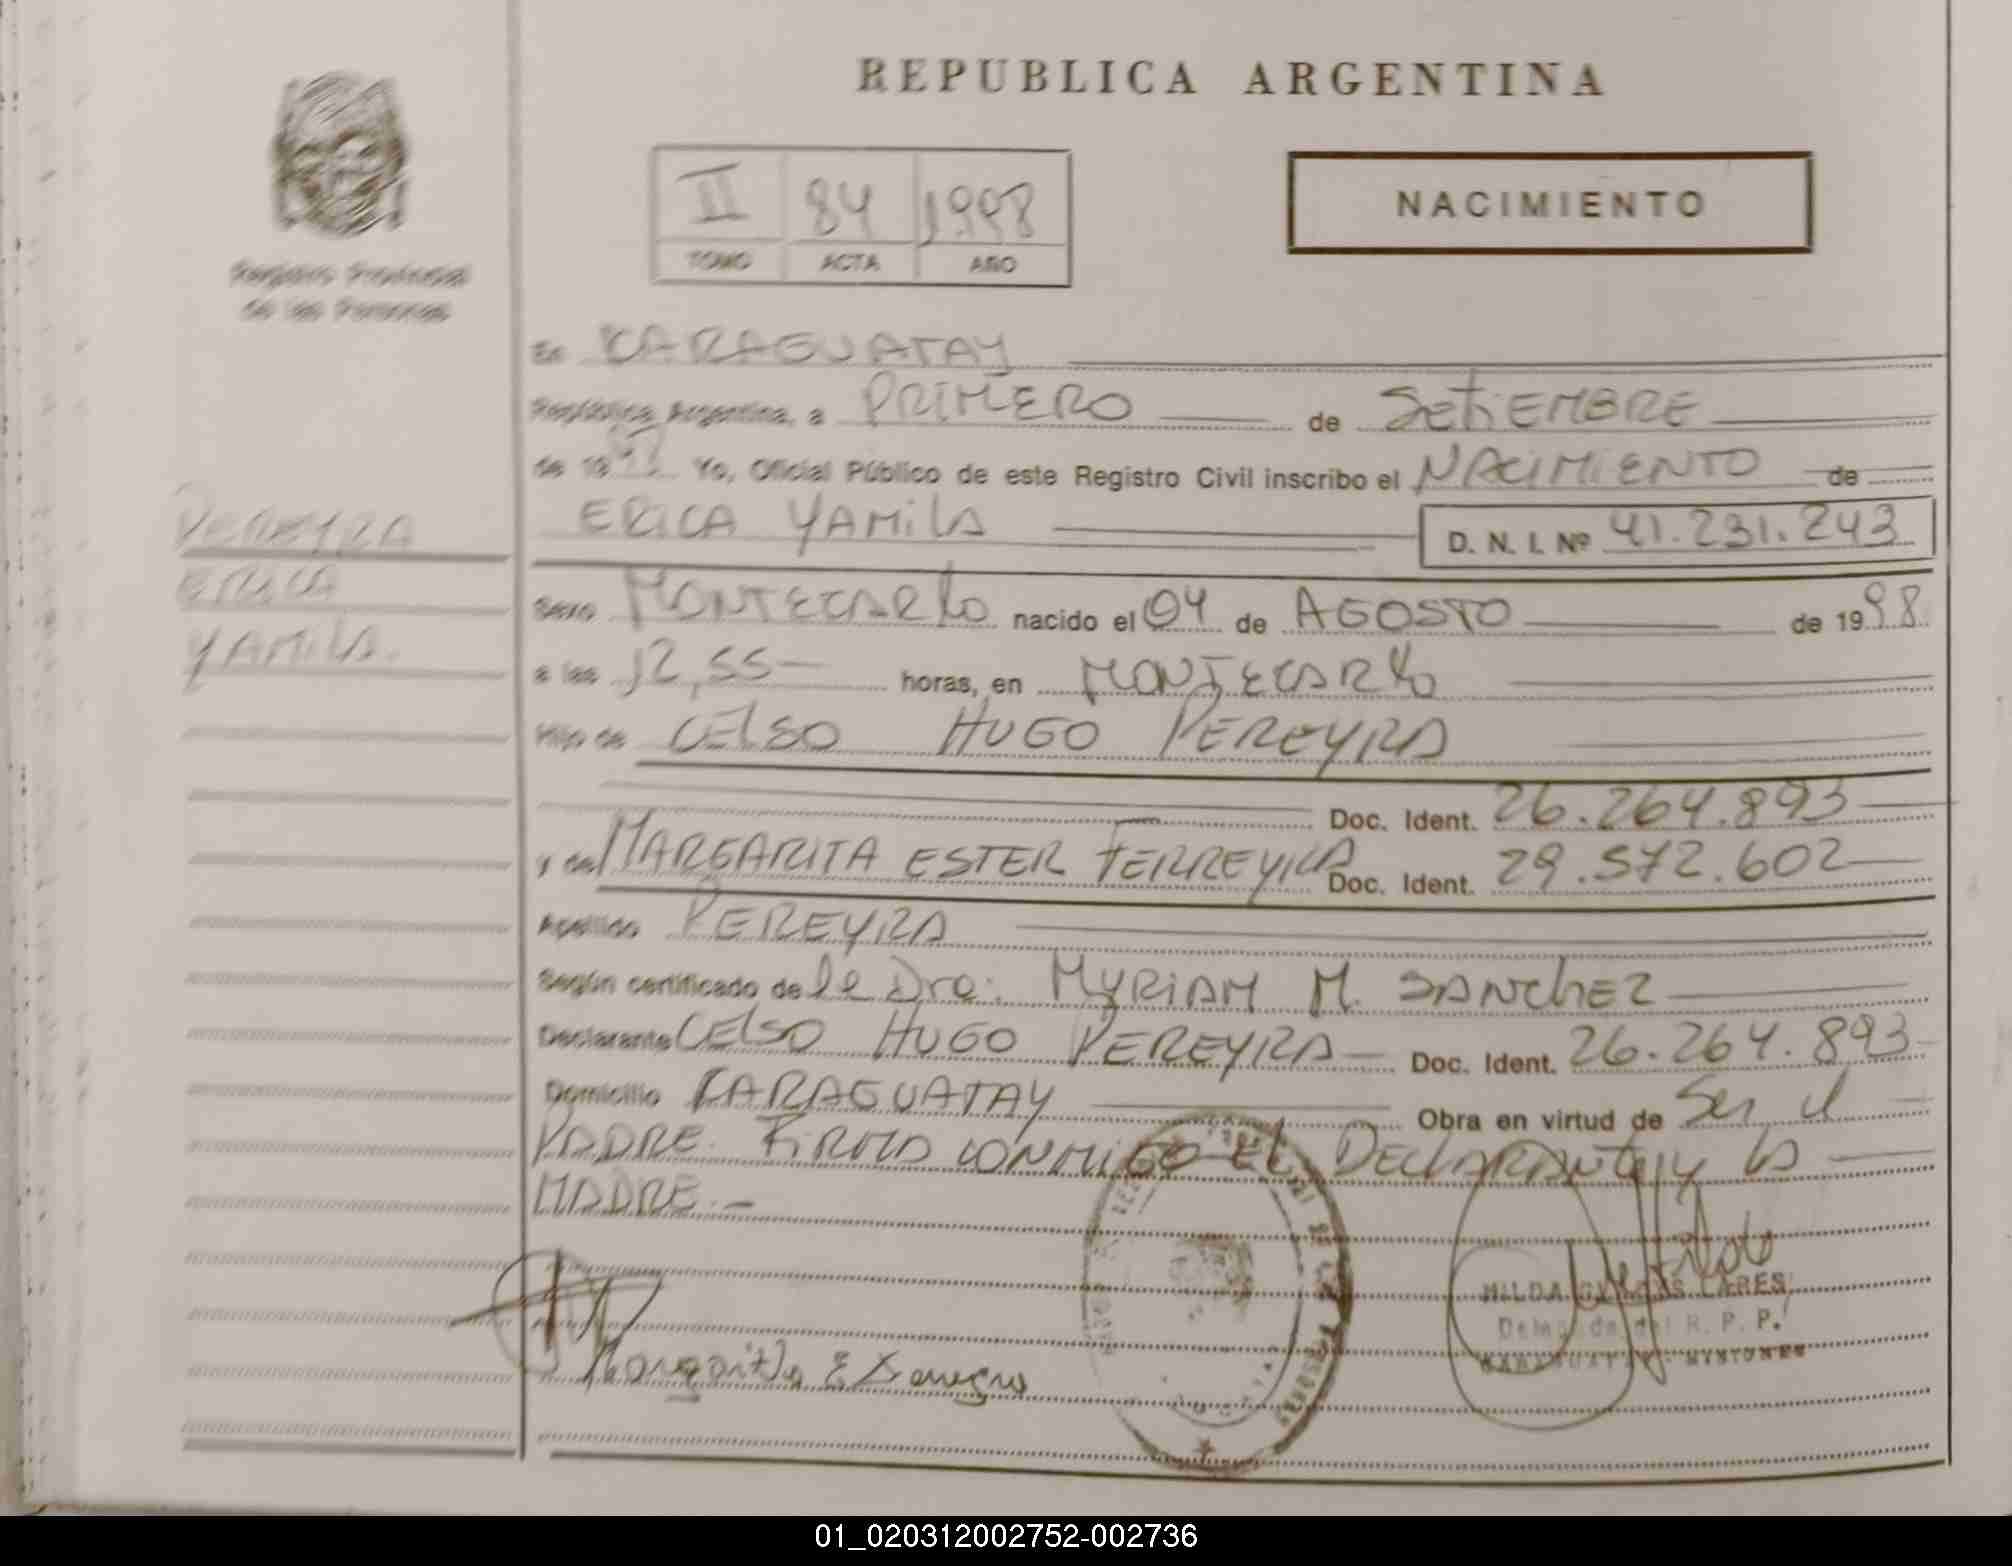 REPUBLICA ARGENTINA
Registro Provincial
de las Personas
II 84 1998
TOMO ACTA AÑO
NACIMIENTO
En CARAGUATAY
República Argentina, a PRIMERO de SETIEMBRE
de 19 Yo, Oficial Público de este Registro Civil inscribo el NACIMIENTO de
PEREYRA
ERICA
YAMILA.
ERICA YAMILA D. N. I. Nº 41.231.243
Sexo MONTECARLO nacido el 04 de AGOSTO de 1998
a las 12,55 horas, en MONTECARLO
Hijo de CELSO HUGO PEREYRA
Doc. Ident. 26.264.893
y de MARGARITA ESTER FERREYRA Doc. Ident. 29.572.602
Apellido PEREYRA
Según certificado de la Dra. MYRIAM M. SANCHEZ
Declarante CELSO HUGO PEREYRA Doc. Ident. 26.264.893
Domicilio CARAGUATAY Obra en virtud de Ser el
PADRE. FIRMA CONMIGO EL DECLARANTE y LA
MADRE.-
Margarita E
HILDA LARES
Delegada del R. P. P.
CARAGUATAY - MISIONES
01_020312002752-002736